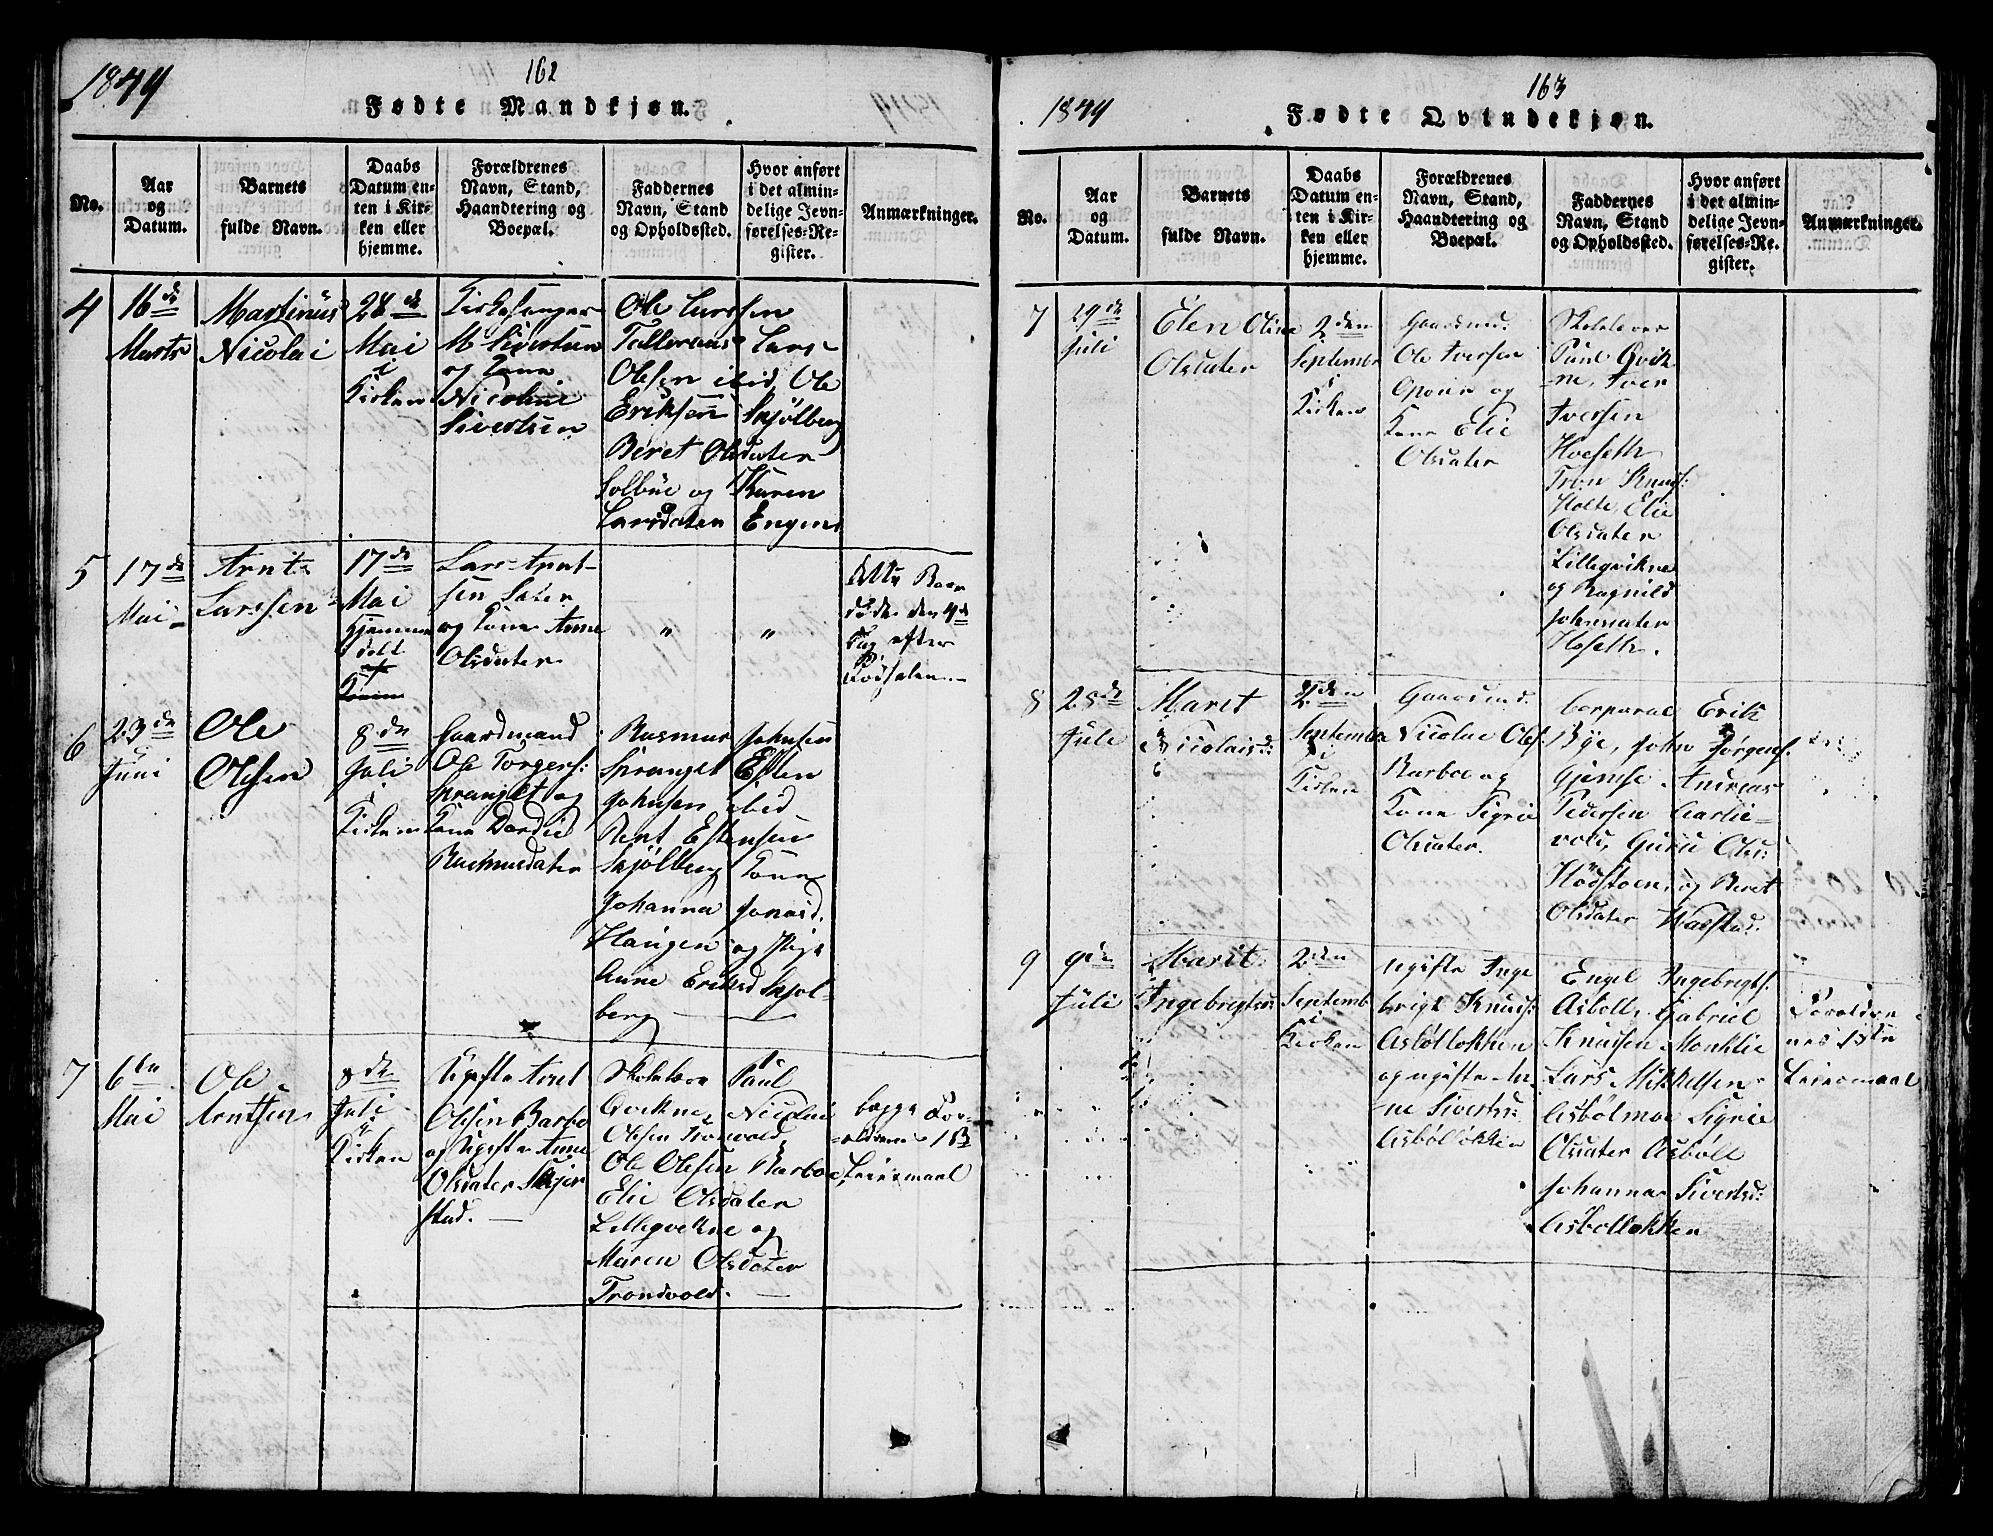 1844
162
Fødte Mandkjøn.
No.
Aar
og
Datum.
Barnets
fulde Navn.
Daabs
Datum en-
ten i Kir-
ken eller
hjemme.
Forældrenes
Navn, Stand,
Haandtering og
Boepæl.
Faddernes
Navn, Stand
og Opholdssted.
Hvor anført
i det almin-
delige Jevn-
førelses-Re-
gister.
Anmærkninger.
4
16de
Marts
Martinus
Nicolai
28de
Mai
i
Kirken
Kirkesanger
M Sivertsen
og Kone
Nicoline
Sivertsen
Ole Larssen
Lars
Olesen ibid, Ole
Eriksen Skjølberg
Beret Olsdater
Solbue og Karen
Larsdater Engene
5
17de
Mai
Arnt
Larssen
17de
Mai
hjemme
døbt
Lars Arnt-
sen Sæter
og Kone Anne
Olsdater
"
"
dette Barn
døde den 4de
Dag efter
Fødselen.
6
23de
Juni
Ole
Olesen
8de
Juli
i
Kirken
Gaardmand
Ole Torgers:
Spranget og
Kone Dordie
Rasmusdater
Rasmus Johnsen
Spranget Esten
Johnsen ibid
Bent Estensen
Skjølberg Kone
Johanna Jonasd.
Haugen og Pige
Anne Eriksd Skjøl-
berg
7
6te
Mai
Ole
Arntsen
8de
Juli
i
Kirken
Ugifte Arnt
Olesen Barbo
og Ugifte Anne
Olsdater Skjer
stad.
Skolelærer Paul
Qvikne, Nicolai
Olesen Tronvold,
Ole Olesen Barboe
Elie Olsdater
Lillegvikne og
Maren Olsdater
Tronsvold.
begge For-
ældrenes 1ste
Leiermaal
1844
163
Fødte Qvindekjøn.
No.
Aar
og
Datum.
Barnets
fulde Navn.
Daabs
Datum en-
ten i Kir-
ken eller
hjemme.
Forældrenes
Navn, Stand,
Haandtering og
Boepæl.
Faddernes
Navn, Stand
og Opholdssted.
Hvor anført
i det almin-
delige Jevn-
førelses-Re-
gister.
Anmærkninger.
7
29de
Juli
Elen Oline
Olsdater
2den
September
i
Kirken
Gaardmd.
Ole Iversen
og
Kone Elie
Olsdater
Skolelærer
Paul Qvik
ne, Iver
Iversen
Hoeseth
Tron Knuds:
Holte, Elie
Olsdater
Lillegvikne
og Ragnild
Johnsdater
Hoseth.
8
25de
Juli
Maret
Nicolaisd:
2den
September
i
Kirken
Gaardmd.
Nicolai Oles:
Barboe og
Kone Sigrie
Olsdater.
Corporal Erik
Bye, John Jørgens:
Gjemse Andreas
Pedersen Carlie-
vold, Guru Ols:
Hødstoen, og Beret
Olsdater Walstad.
9
9de
Juli
Marit
Ingebrigtsd:
2den
Septemb
i
Kirken
ugifte Inge
brigt Knuds:
Asbøllokken
og ugifte An
ne Siverts:
Asbøllokken
Engel Ingebrigts.
Asbøll, Gabriel
Knudsen Monklie
Lars Mikkelsen
Asbølmoe Sigrie
Olsdater Asbøll
Johanna Siverts:
Asbøllokken
Forældre
nes 1ste
Leiermaal